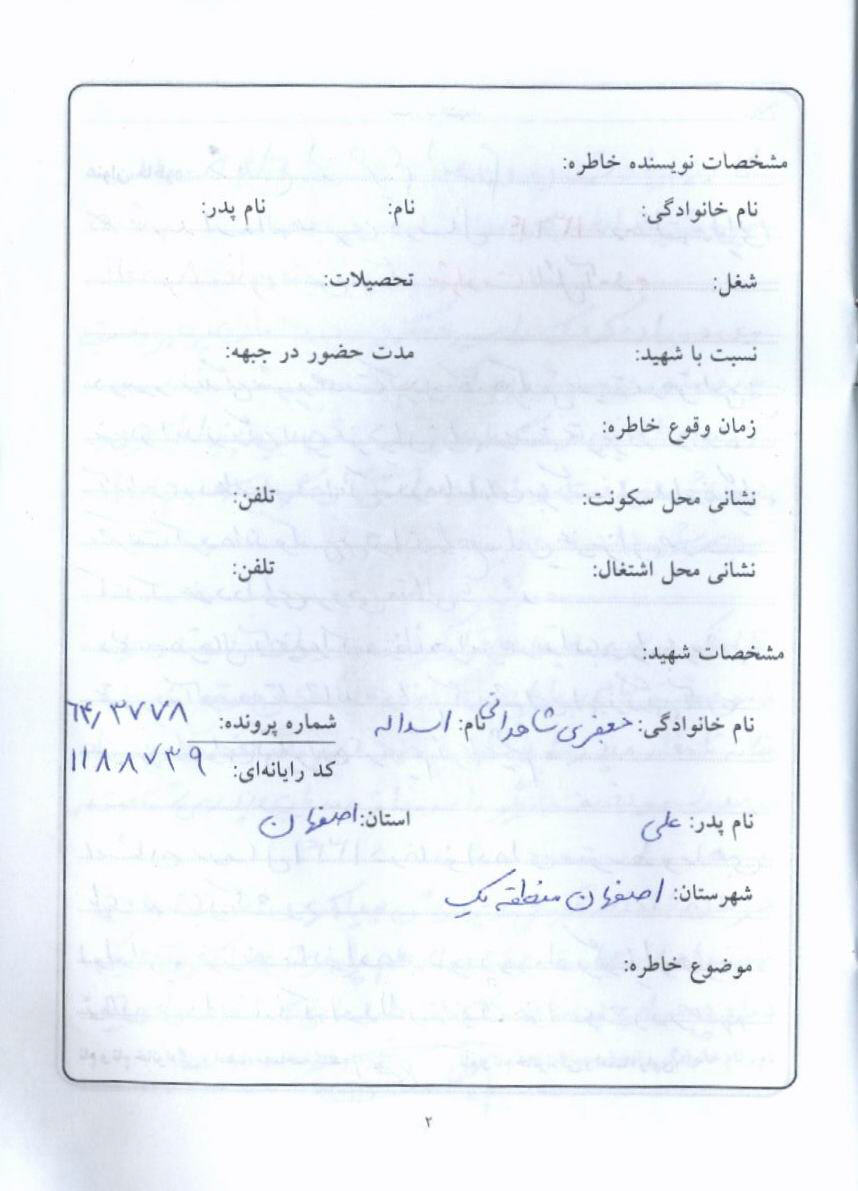 مشخصات نویسنده خاطره:
نام خانوادگی: نام: نام پدر:
شغل: تحصیلات:
نسبت با شهید: مدت حضور در جبهه:
زمان وقوع خاطره:
نشانی محل سکونت: تلفن:
نشانی محل اشتغال: تلفن:
مشخصات شهید:
نام خانوادگی: جعفری نام: اسداله شماره پرونده: ۶۴/۳۷۷۸
کد رایانه‌ای: ۱۱۸۸۷۳۹
نام پدر: علی استان: اصفهان
شهرستان: اصفهان منطقه یک
موضوع خاطره:
۲